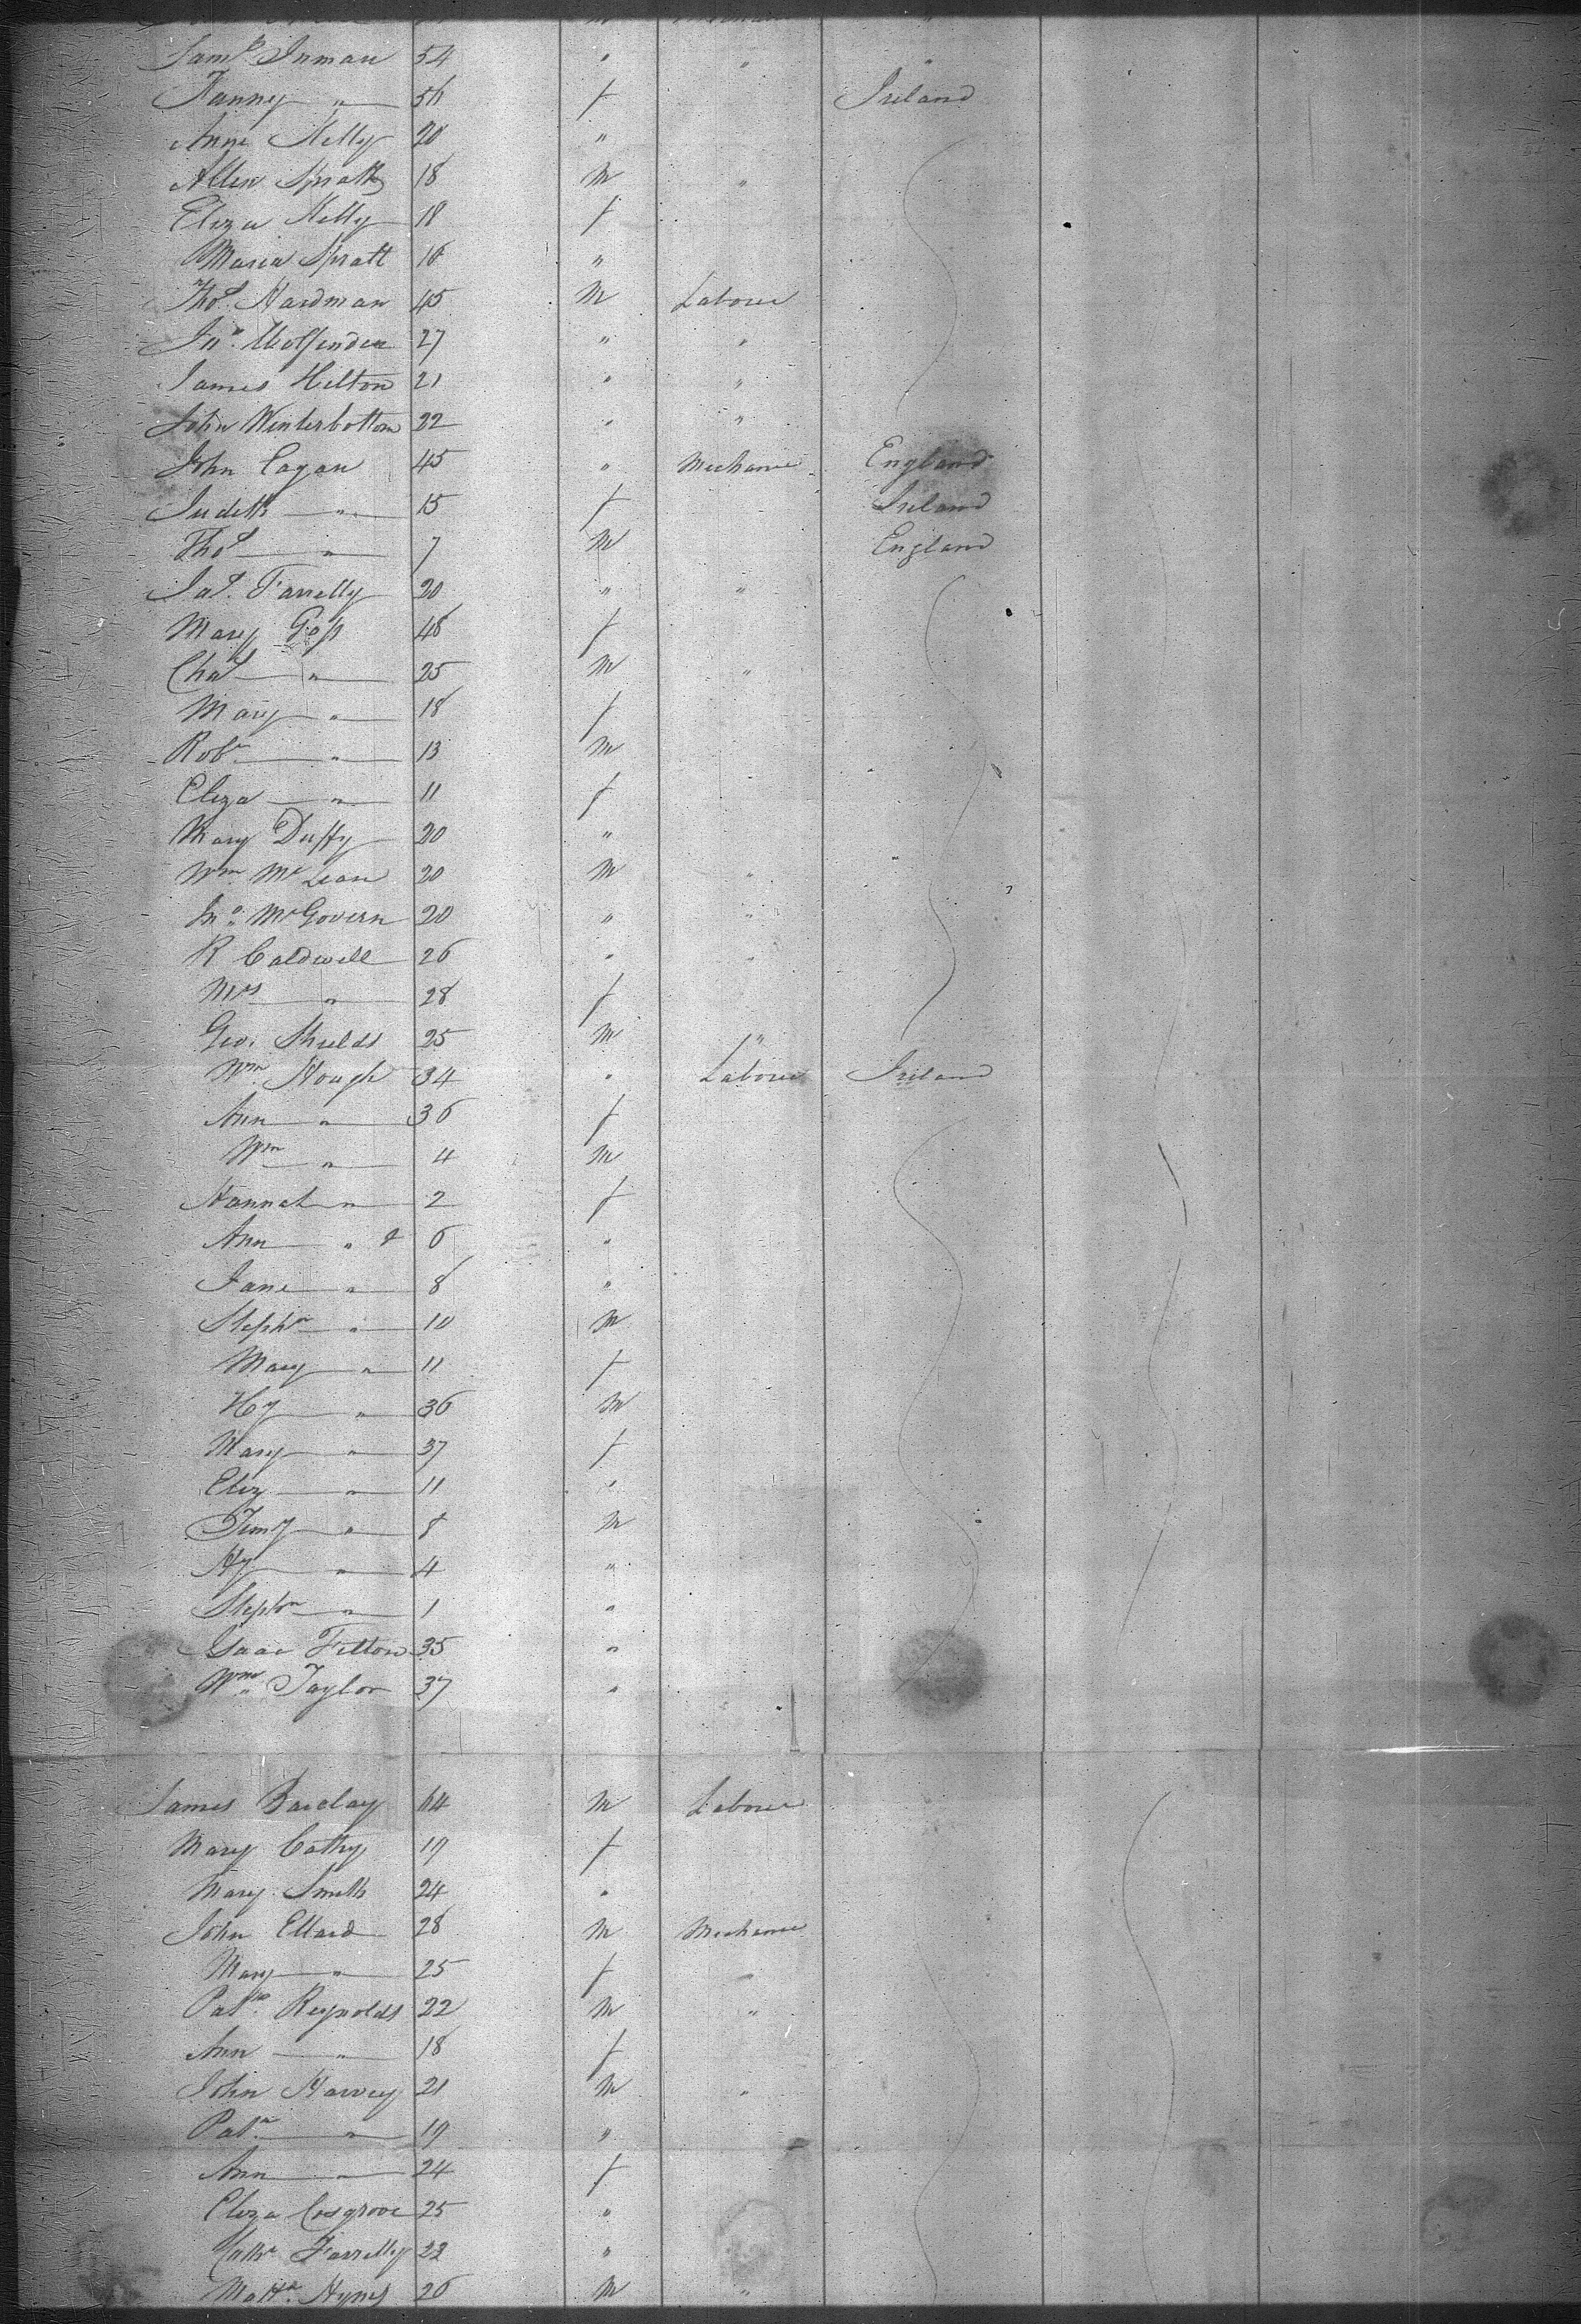 Saml Inman 54 " " "
Fanny " 56 f Ireland
Anne Kelly 20 "
Allen Spratt 18 M "
Eliza Kelly 18 f
Maria Spratt 16 "
Thos. Hardman 45 M Labourer
Jno. Wolfenden 27 " "
James Hilton 21 " "
John Winterbottom 22 " "
John Cagan 45 " Mechanic England
Judith " 15 f Ireland
Thos " 7 M England
Jas. Farrelly 20 " "
Mary Goss 48 f
Chas " 25 M "
Mary " 18 f
Robt " 13 M
Eliza " 11 f
Mary Duffy 20 "
Wm. McLean 20 M "
Jno. McGovern 20 " "
R Caldwell 26 " "
Mrs " 28 f
Geo. Shields 25 M "
Wm Hough 34 " Labourer Ireland
Ann " 36 f
Wm " 4 M
Hannah " 2 f
Ann " 6 "
Jane " 8 "
Stephn " 10 M
Mary " 11 f
Hy " 36 M
Mary " 37 f
Eliz " 11 "
Timy " 8 M
Hy " 4 "
Stephn " 1 "
Isaac Fitton 35 "
Wm. Taylor 37 "
James Barclay 64 M Labourer
Mary Cathy 19 f
Mary Smith 24 "
John Ellard 28 M Mechanic
Mary " 25 f "
Patk. Reynolds 22 M "
Ann " 18 f
John Harvey 21 M "
Patk. " 19 "
Ann " 24 f
Eliza Cosgrove 25 "
Cathe Farrelly 22 "
Mattw. Hynes 26 M "